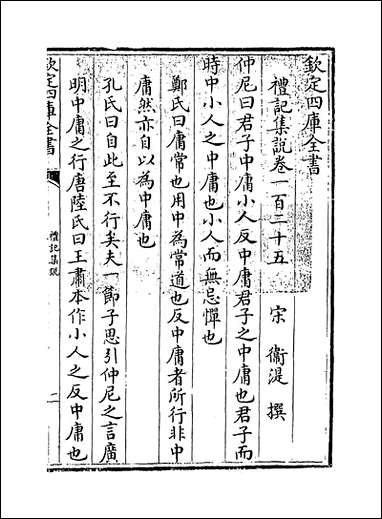 欽定四庫全書
禮記集說卷一百二十五
宋 衛湜 撰
仲尼曰君子中庸小人反中庸君子之中庸也君子而
時中小人之中庸也小人而無忌憚也
鄭氏曰庸常也用中為常道也反中庸者所行非中
庸然亦自以為中庸也
孔氏曰自此至不行矣夫一節子思引仲尼之言廣
明中庸之行唐陸氏曰王肅本作小人之反中庸也
欽定四庫全書
禮記集說